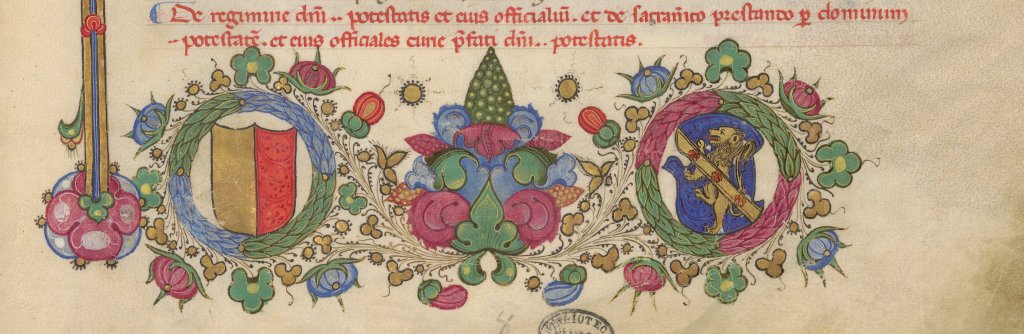 De regimine dn̄i .. potestatis et eius officialiū . et de sacram̄to prestando ꝑ dominum
.. potestatē . et eius officiales curie p̄fati dn̄i .. potestatis.
BIBLIOTEC